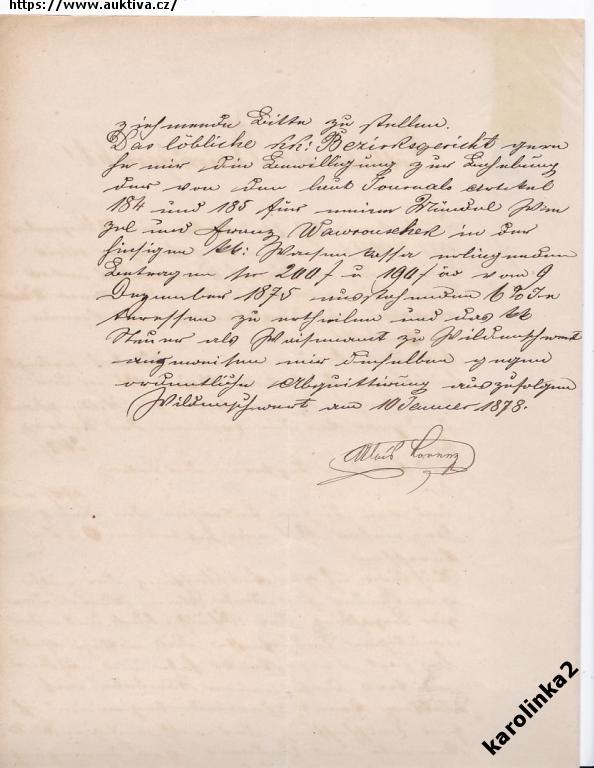 https://www.auktiva.cz/
ziehmende Bitte zu stellen.
Das löbliche kk: Bezirksgericht geru
he mir die Bewilligung zur Behebung
der von den laut Journals Artikel
184 und 185 für meine Mündel Wen
zel und Franz Wawrouschek in der
hiesigen kk: Waisenkassa erliegenden
Betragen pr 200 f u 190 f öw vom 9
Dezember 1875 ausstehenden 6% In
teressen zu ertheilen und das kk
Steuer als Waisenamt zu Wildenschwert
anzuweisen mir dieselben gegen
ordentliche Abquittirung auszufolgen
Wildenschwert am 10 Jenner 1878.
Alois Lorenz
karolinka2